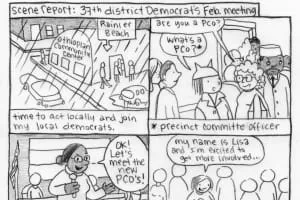 Scene Report: 37th district Democrat's Feb. meeting
Rainier
Beach
Ethiopian
Community
Center
time to act locally and join
my local democrats.
are you a PCO?
What's a
PCO?*
* precinct committe officer
OK!
Let's
meet the
new
PCO's!
my name is Lisa
and I'm excited to
get more involved...